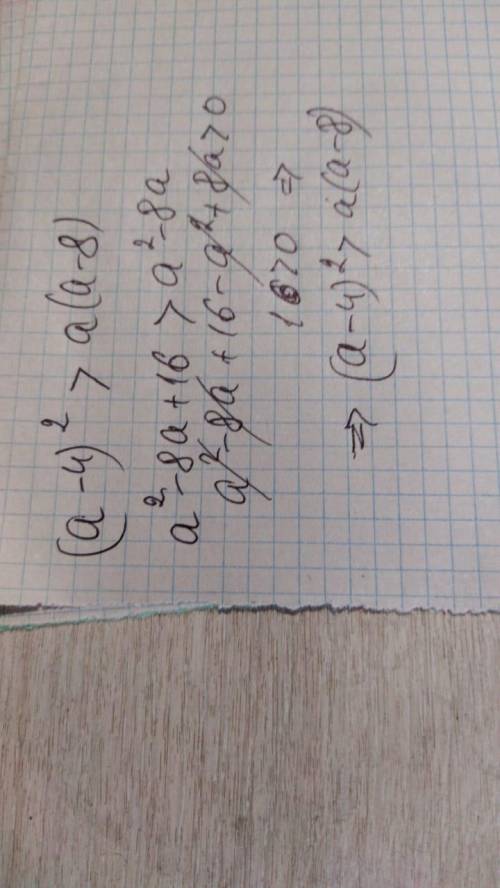 (a-4)² > a(a-8)
a²-8a+16 > a²-8a
a²-8a+16-a²+8a>0
16>0 ⇒
⇒ (a-4)² > a(a-8)